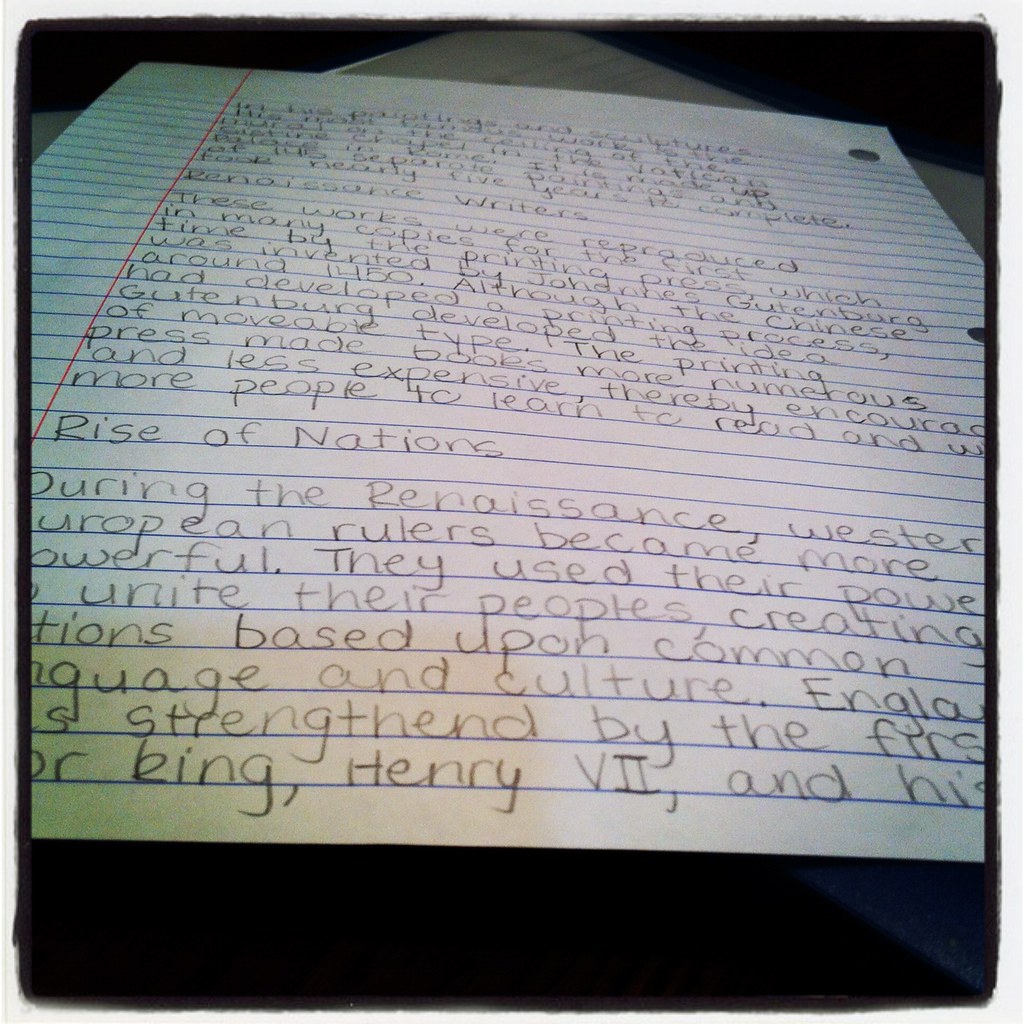 in his paintings and sculptures.
His most famous work is the
mural on the ceiling of the
Sistine Chapel in the Vatican
palace in Rome. It is made up
of 145 separate paintings and
took nearly five years to complete.
Renaissance Writers
These works were reproduced
in many copies for the first
time by the printing press which
was invented by Johannes Gutenburg
around 1450. Although the Chinese
had developed a printing process,
Gutenburg developed the idea
of moveable type. The printing
press made books more numerous
and less expensive, thereby encourag
more people to learn to read and w
Rise of Nations
During the Renaissance, wester
uropean rulers became more
owerful. They used their powe
unite their peoples, creating
tions based upon common
nguage and culture. Engla
s strengthend by the firs
or king, Henry VII, and his